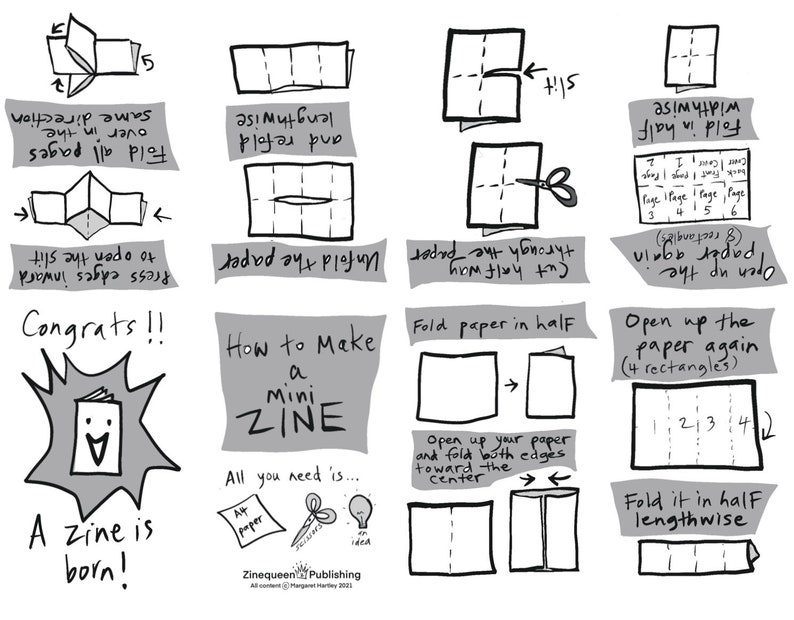 How to Make
a
mini
ZINE
All you need is...
A4
paper
scissors
an
idea
Zinequeen Publishing
All content © Margaret Hartley 2021
Fold paper in half
Open up your paper
and fold both edges
toward the
center
Open up the
paper again
(4 rectangles)
1 2 3 4
Fold it in half
lengthwise
Open up the
paper again
(8 rectangles)
Page Page Page Page
3 4 5 6
back Front Page Page
Cover Cover 1 2
Fold in half
widthwise
Cut halfway
through the paper
slit
Unfold the paper
and refold
lengthwise
Press edges inward
to open the slit
Fold all pages
over in the
same direction
Congrats!!
A zine is
born!